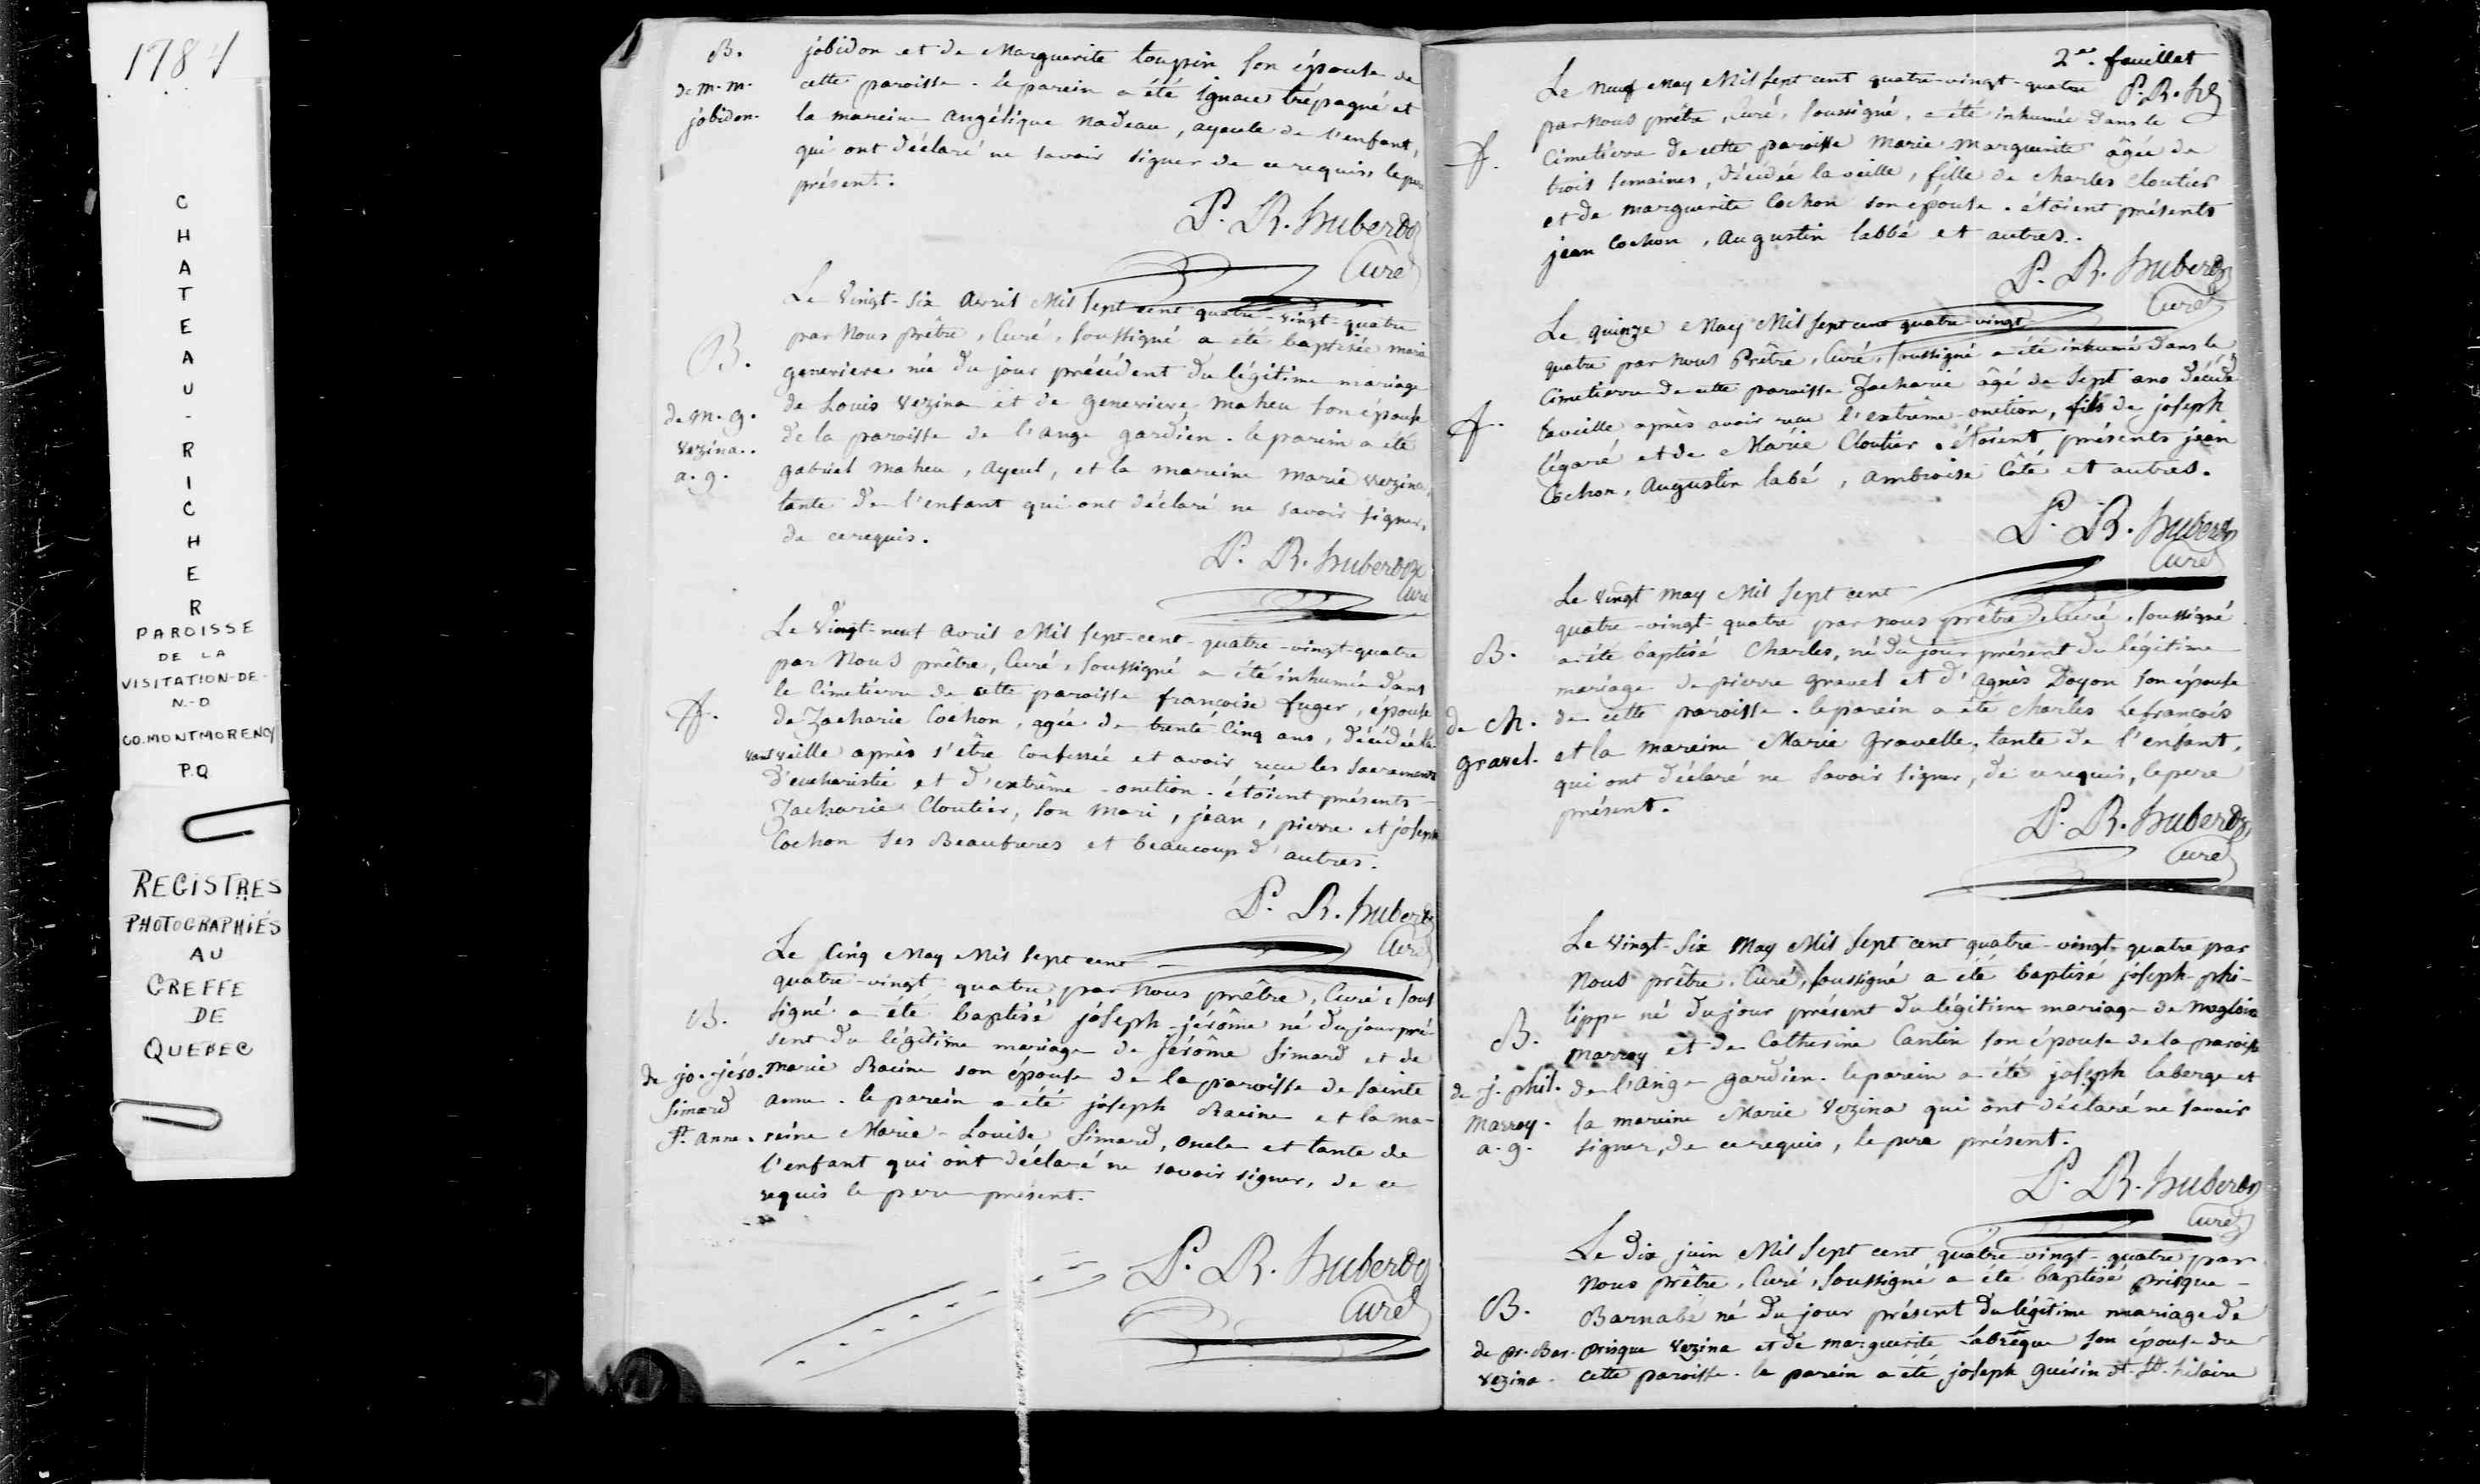 1784
CHATEAU-RICHER
PAROISSE
DE LA
VISITATION-DE-
N.-D
CO. MONTMORENCY
P.Q
REGISTRES
PHOTOGRAPHIÉS
AU
GREFFE
DE
QUEBEC
B.
de m. m.
jobidon.
jobidon et de Marguerite toupin son épouse de
cette paroisse. le parein a été ignace trépagné et
la mareine angélique nadeau, ayeule de l'enfant,
qui ont déclaré ne savoir signer de ce requis, le pere
présent.
P. R. huberdo
Curé
B.
de m. g.
vezina..
a. g.
Le vingt-six avril Mil sept cent quatre-vingt-quatre
par Nous prêtre, Curé, soussigné a été baptisée marie
genevieve née du jour précédent du légitime mariage
de Louis vezina et de genevieve maheu son épouse
de la paroisse de l'ange gardien. le parein a été
gabriel maheu, ayeul, et la mareine marie vezina,
tante de l'enfant qui ont déclaré ne savoir signer,
de ce requis.
P. R. huberdo
Curé
Le vingt-neuf avril Mil sept-cent-quatre-vingt-quatre
par Nous prêtre, Curé, soussigné a été inhumée dans
le Cimetierre de cette paroisse françoise fuger, épouse
de Zacharie Cochon, agée de trente Cinq ans, décédée la
veille après s'être Confessée et avoir reçu les sacremens
d'eucharistie et d'extrême-onction. étoient présents
Zacharie Cloutier, son mari, jean, pierre et joseph
Cochon ses Beaufreres et beaucoup d'autres.
P. R. huberdo
Curé
B.
de jo. jéro.
Simard
St. anne.
Le Cinq May Mil sept cent
quatre-vingt quatre par Nous prêtre, Curé, sous
signé a été baptisé joseph-jérôme né du jour pré-
sent du légitime mariage de jérôme Simard et de
marie Racine son épouse de la paroisse de sainte
anne. le parein a été joseph Racine et la ma-
reine Marie-Louise Simard, oncle et tante de
l'enfant qui ont déclaré ne savoir signer, de ce
requis le pere présent.
P. R. huberdo
Curé
2me. feuillet
Le neuf May Mil sept cent quatre-vingt-quatre
par Nous prêtre, Curé, soussigné, a été inhumée dans le
Cimetierre de cette paroisse Marie-marguerite âgée de
trois semaines, décédée la veille, fille de charles Cloutier
et de marguerite Cochon son épouse. étoient présents
jean Cochon, Augustin labbé et autres.
P. R. huberdo
Curé
Le quinze May Mil sept cent quatre-vingt
quatre par nous Prêtre, Curé, soussigné a été inhumé dans le
Cimetierre de cette paroisse Zacharie âgé de sept ans décédé
la veille après avoir reçu l'extrême-onction, fils de joseph
légaré et de Marie Cloutier. étoient présents jean
Cochon, Augustin labé, ambroise Côté et autres.
P. R. huberdo
Curé
B.
de Ch.
gravel.
Le vingt may Mil sept cent
quatre-vingt-quatre par nous prêtre, Curé, soussigné
a été baptisé Charles, né du jour présent du légitime
mariage de pierre gravel et d'agnès Doyon son épouse
de cette paroisse. le parein a été charles Lefrançois
et la mareine Marie Gravelle, tante de l'enfant,
qui ont déclaré ne savoir signer, de ce requis, le pere
présent.
P. R. huberdo
Curé
B.
de j. phil.
Marroy.
a. g.
Le vingt-six May Mil sept cent quatre-vingt-quatre par
Nous prêtre, Curé, soussigné a été baptisé joseph-phi-
lippe né du jour présent du légitime mariage de Magloire
marroy et de Catherine Cantin son épouse de la paroisse
de l'ange gardien. le parein a été joseph laberge et
la mareine Marie Vezina qui ont déclaré ne savoir
signer, de ce requis, le pere présent.
P. R. huberdo
Curé
B.
de pr. Bar.
vezina.
Le dix juin Mil sept cent quatre-vingt-quatre par
Nous prêtre, Curé, soussigné a été baptisé prisque-
Barnabé né du jour présent du légitime mariage de
prisque vezina et de marguerite Labrèque son épouse de
cette paroisse. le parein a été joseph guérin dt. St. hilaire